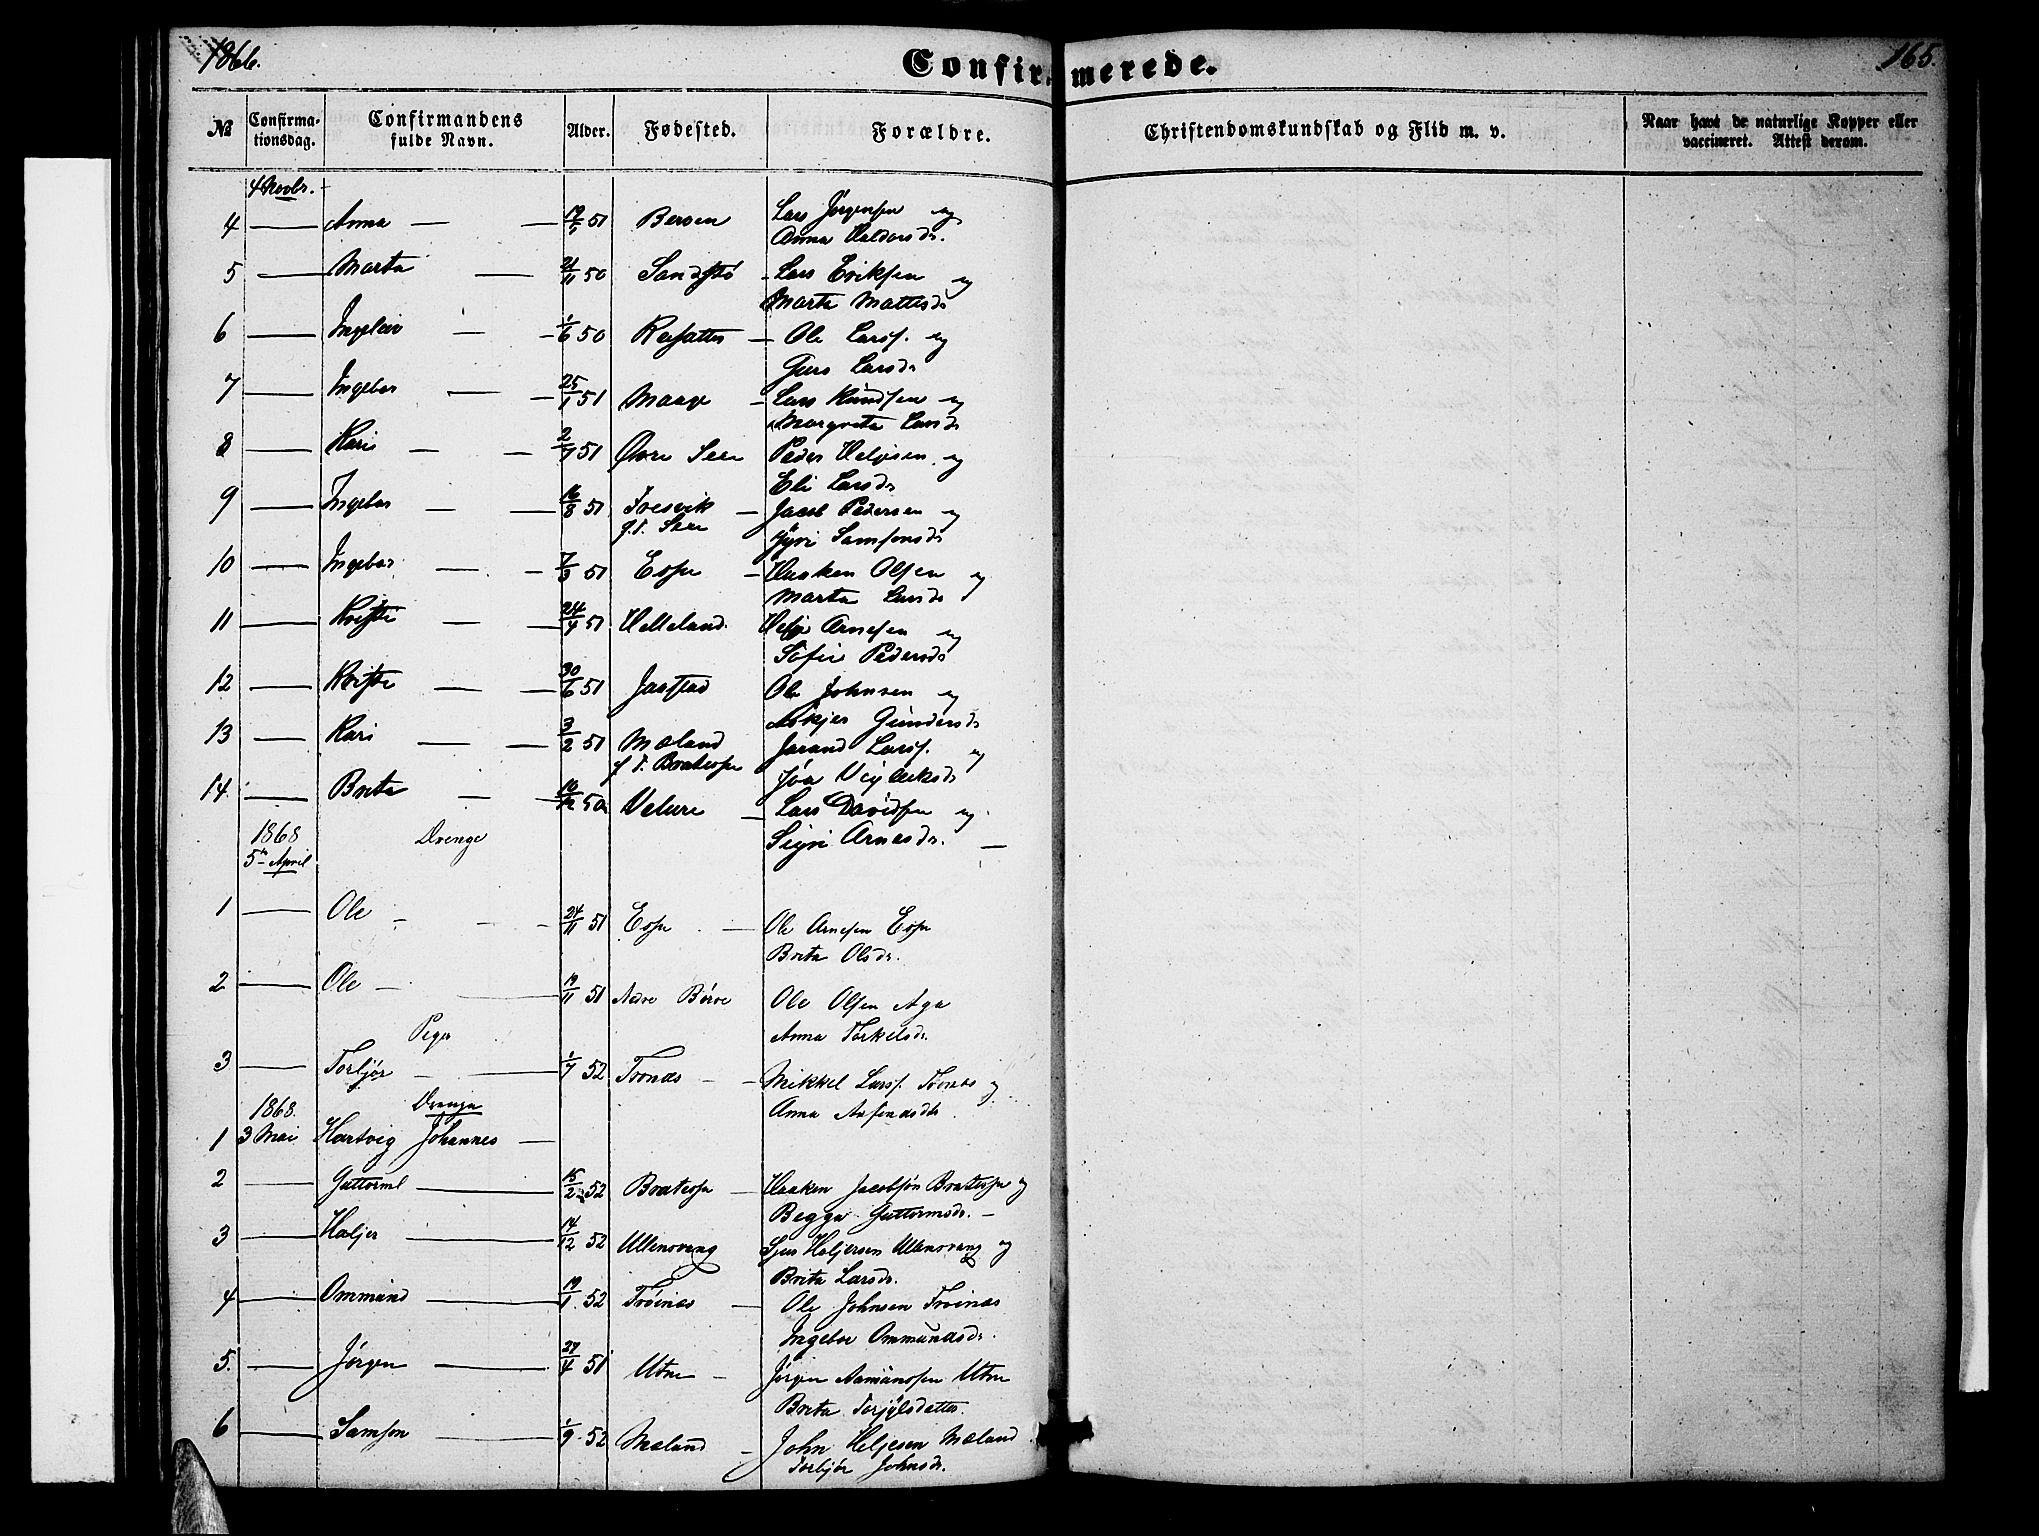 1866.
Confirmerede.
165.
No
Confirma-
tionsdag.
Confirmandens
fulde Navn.
Alder.
Fødested.
Forældre.
Christendomskundskab og Flid m. v.
Naar havt de naturlige Kopper eller
vaccineret. Attest derom.
4 Novbr.
4 Anna 19/1 51 Bersen Lars Jørgensen og
Anna Haldorsdr.
5 Marta 21/11 50 Sandstø Lars Eriksen og
Marta Mattesdr
6 Ingeleiv 1/6 50 Reisatter Ole Larsf. og
Guro Larsdr
7 Ingebor 25/1 51 Maage Lars Knudsen og
Margreta Larsdr
8 Kari 2/7 51 Øvre Seer Peder Heljesen og
Eli Larsdr
9 Ingebor 16/8 51 Fresvik Jacob Pedersen og
f. T. Seer Gyri Samsonsdr
10 Ingebor 7/3 51 Espe Haaken Olsen og
Marta Larsdr
11 Kristi 24/4 51 Helleland Helje Arnesen og
Sofie Pedersdr
12 Kristi 30/6 51 Jaastad Ole Johnsen og
Askjer Gundersdr
13 Kari 3/2 51 Mæland Jarand Larsf. og
f T. Bratespe Joa Vigleiksdr
14. Brita 10/12 50 Velure Lars Davidsen og
Sigri Arnesdr.
1868
5te April
Drenge
1 Ole 24/11 51 Espe Ole Arnesen Espe
Brita Olsdr.
2 Ole 19/11 51 Børve Ole Olsen Aga
Anna Torkelsdr.
Piger
3 Torbjør 1/7 52 Tronæs Mikkel Larsf. Tronæs og
Anna
1868.
Drenge
1 3 Mai Hartvig Johannes
2 Guttorml 15/2 52 Bratespe Haaken Jacobsøn Bratespe og
Begga Guttormsdr.
3 Heljer 14/12 52 Ullensvang Sjur Heljersen Ullensvang og
Brita Larsdr.
4 Ommund 19/1 52 Trøinæs Ole Johnsen Trøinæs
Ingebor Ommundsdr.
5. Jørgen 27/4 51 Utne Jørgen Aamundsen Utne
Brita Torjylsdatter
6 Samson 1/9 52 Mæland John Heljesen Mæland
Torbjør Johnsdr.